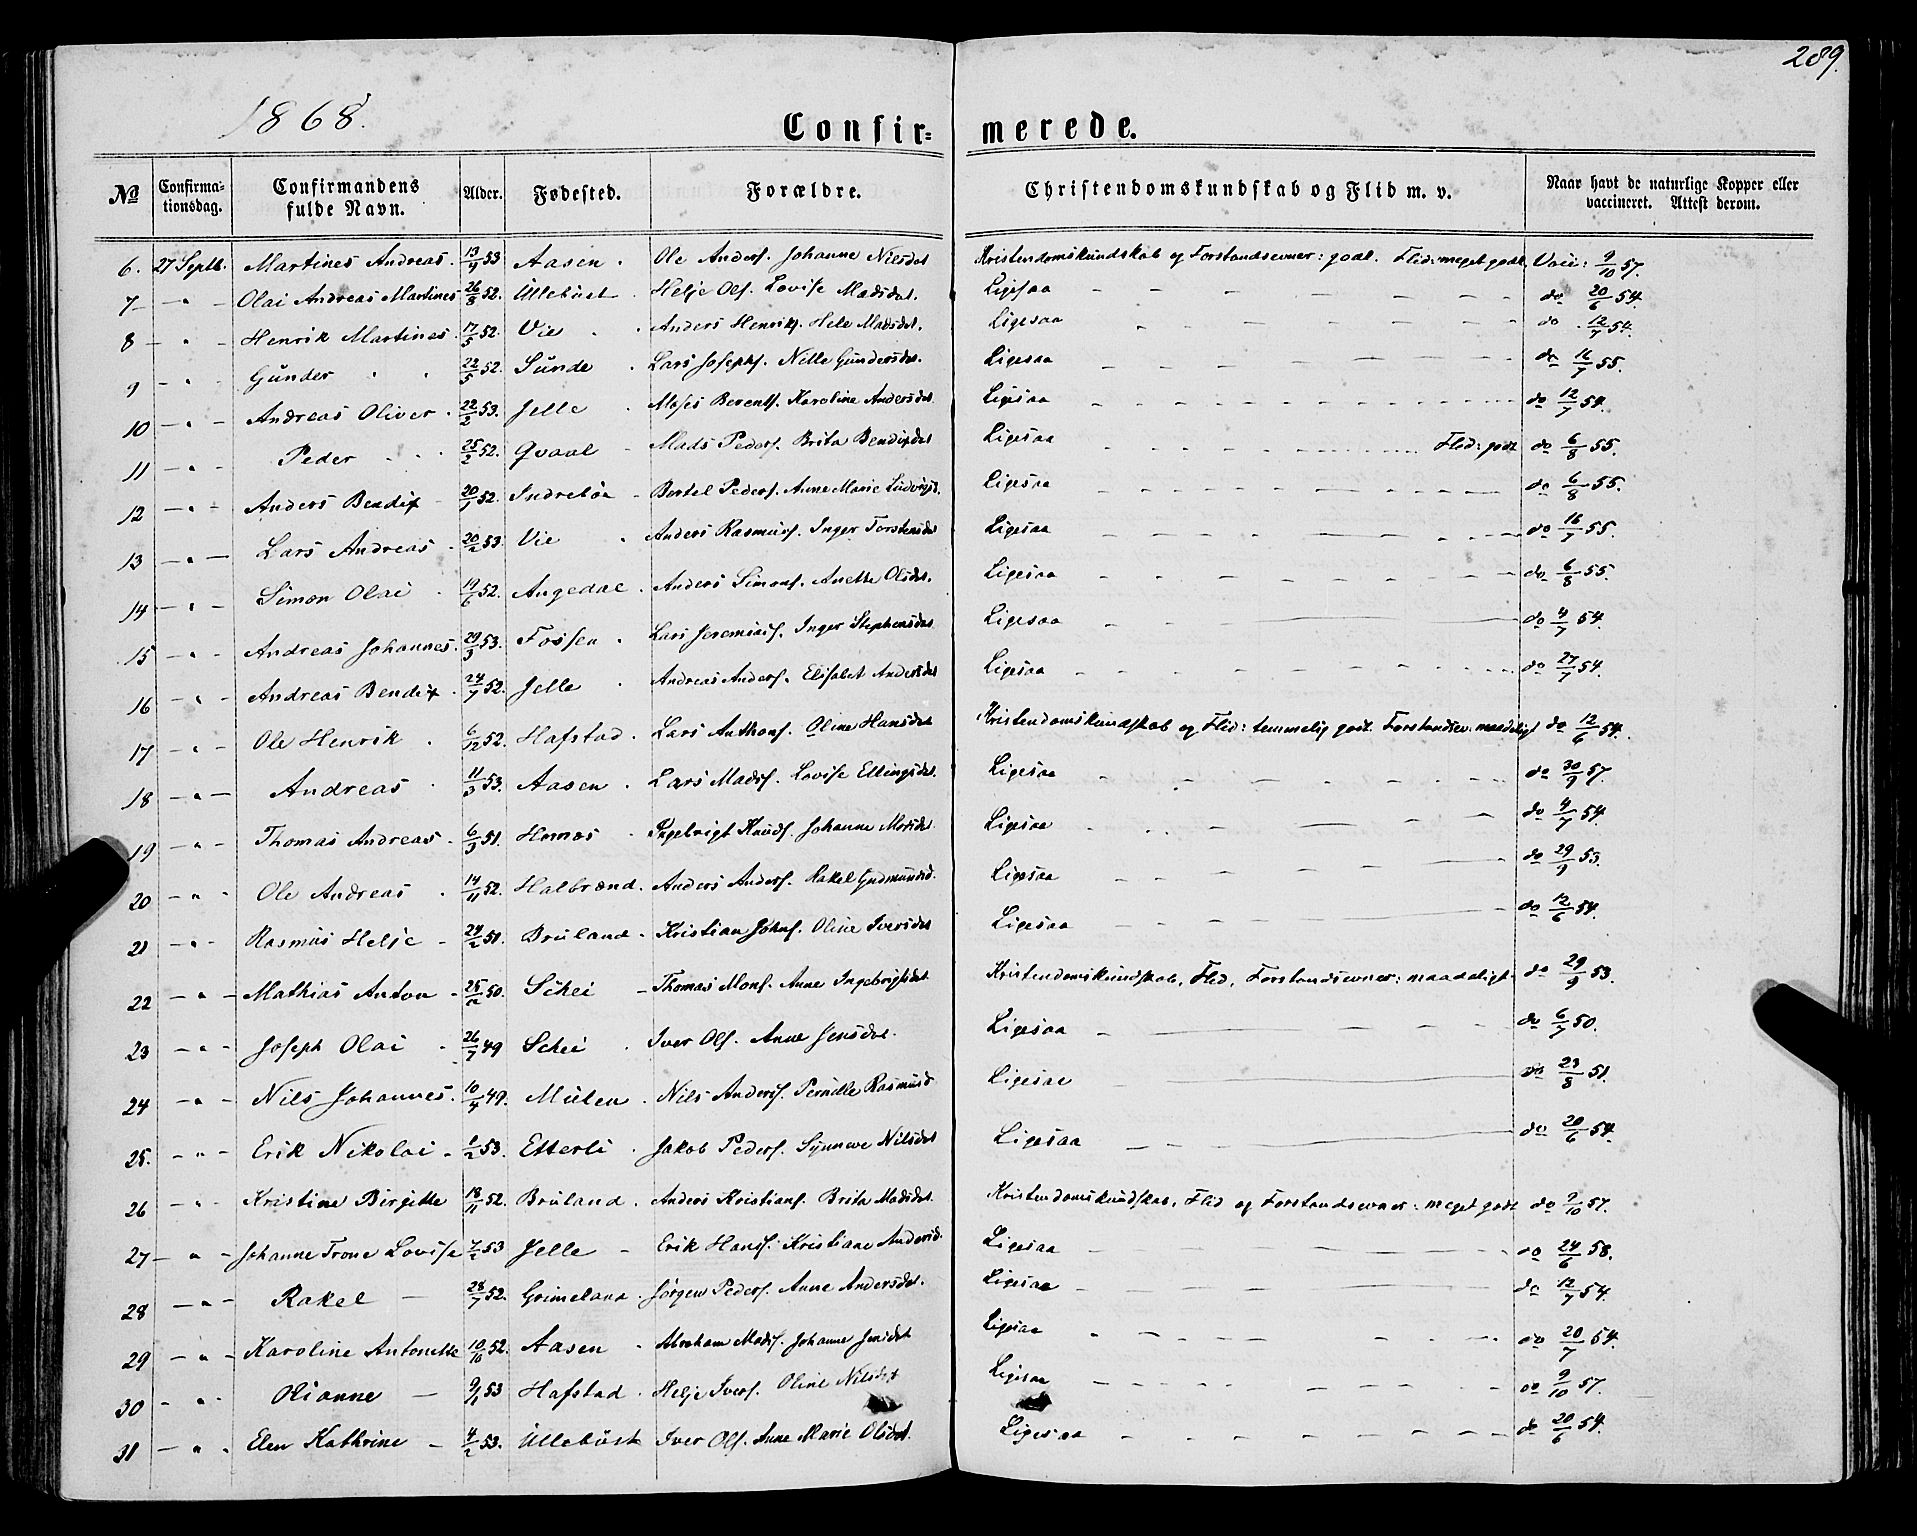 289.
1868.
Confir= merede.
No Confirma-tionsdag. Confirmandens fulde Navn. Alder. Fødested. Forældre. Christendomskundskab og Flid m. v. Naar havt de naturlige Kopper eller vaccineret. Attest derom.
6. 27 Septb. Martines Andreas. 13/4 53 Aasen. Ole Anders. Johanne Nilsdat Kristendomskundskab og Forstandsevner: godt. Flid: meget godt. Vacc: 9/10 57.
7 - " - Olai Andreas Martines 26/8 52. Ullebust. Helje Ols. Lovise Madsdat. Ligesaa do 20/6 54.
8 - " - Henrik Martines. 17/5 52. Vie. Anders Henriks. Hele Madsdat. Ligesaa do 12/7 54.
9 - " - Gunder 22/5 52. Sunde. Lars Josephs. Nille Gundersdat. Ligesaa do 16/7 55.
10 - " - Andreas Oliver. 22/2 53. Jelle. Moses Berents. Karoline Andersdat. Ligesaa do 12/7 54.
11 - " - Peder 25/2 52. Qvaal - Mads Peders. Brita Bendixdat Ligesaa Flid: godt do 6/8 55.
12 - " - Anders Bendix - 20/7 52. Indrebøe - Bertel Peders. Anne Marie Ludvigsd. Ligesaa do 6/8 55.
13 - " - Lars Andreas. 20/2 53. Vie. Anders Rasmus. Inger Torstensdat Ligesaa do 16/7 55.
14 - " - Simon Olai. 19/6 52. Angedal. Anders Simons. Anette Olsdat. Ligesaa do 6/8 55.
15 - " - Andreas Johannes. 29/3 53. Fossen. Lars Jeremias. Inger Stephensdat Ligesaa do 4/7 54.
16 - " - Andreas Bendix. 24/7 52. Jelle. Andreas Anders. Elisabet Andersdat Ligesaa do 27/7 54.
17 - " - Ole Henrik. 6/12 52. Hafstad. Lars Anthons. Oline Hansdat Kristendomskundskab og Flid: temmelig godt. Forstandsev: maadeligt do 12/6 54.
18 - " - Andreas. 11/3 53. Aasen. Lars Mads. Lovise Ellingsdat. Ligesaa do 30/9 57.
19 - " - Thomas Andreas. 6/3 51. Hornes. Ingebrigt Knuds. Johanne Monsdat Ligesaa do 4/7 54.
20 - " - Ole Andreas. 14/11 52. Halbrænd. Anders Anders. Rakel Gudmundsd. Ligesaa do 29/9 53.
21 - " - Rasmus Helje - 24/2 51. Bruland. Kristian Johns. Oline Iversdat Ligesaa do 12/6 54.
22 - " - Mathias Anton - 50. Schei - Thomas Mons. Anne Ingebrigtsdat Kristendomskundskab, Flid, Forstandsevner: maadeligt. do 29/9 53.
23 - " - Joseph Olai. 26/7 49 Schei. Iver Ols. Anne Jensdat. Ligesaa do 6/7 50.
24 - " - Nils Johannes. 10/4 49. Mulen. Nils Anders. Pernille Rasmusd. Ligesaa do 23/8 51.
25. - " - Erik Nikolai - 1/2 53. Etterli. Jakob Peders. Synneve Nilsdat Ligesaa do 20/6 54.
26 - " - Kristine Birgitte 18/11 52. Bruland. Anders Kristians. Brita Madsdat. Kristendomskundskab, Flid og Forstandsevner: meget godt do 9/10 57.
27 - " - Johanne Trone Lovise 7/2 53 Jelle - Erik Hans. Kristiane Andersd. Ligesaa do 24/6 58.
28 - " - Rakel - 28/7 52. Grimeland. Jørgen Peders. Anne Andersdat. Ligesaa do 12/7 54.
29 - " - Karoline Antonette 10/10 52. Aasen. Abraham Mads. Johanne Jensdat Ligesaa do 20/7 54.
30 - " - Olianne - 53 Hafstad. Helje Ivers. Oline Nilsdat Ligesaa do 9/10 57.
31 - " - Elen Kathrine - 4/2 53. Ullebust Iver Ols. Anne Marie Olsdat. Ligesaa do 20/6 54.